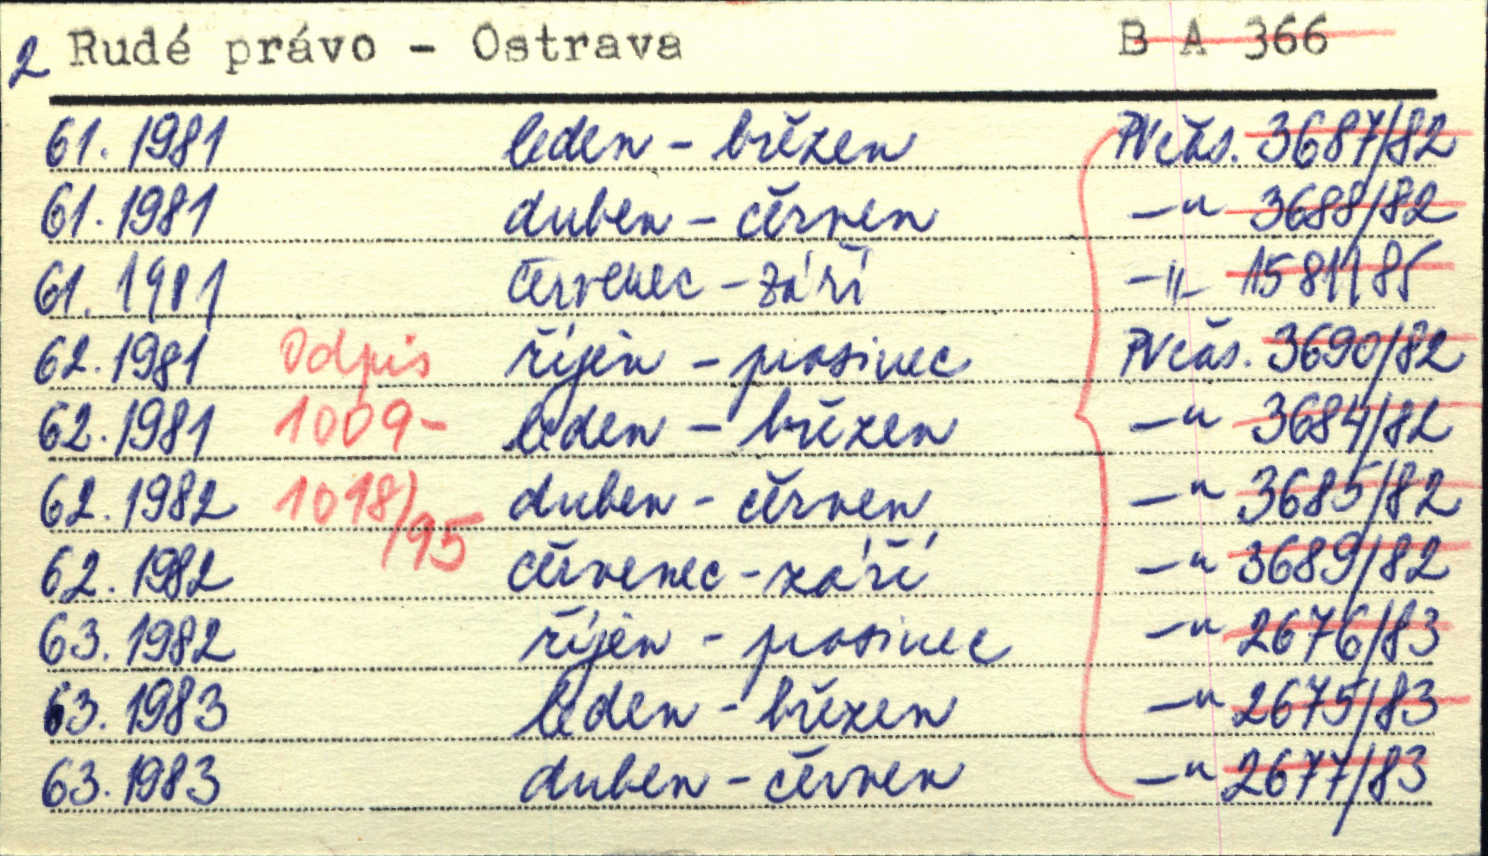 2 Rudé právo - Ostrava B A 366
61. 1981 leden - březen PVčás. 3687/82
61. 1981 duben - červen -"- 3688/82
61. 1981 červenec - září -"- 1581/85
62. 1981 Odpis říjen - prosinec PVčás. 3690/82
62. 1981 1009- leden - březen -"- 3684/82
62. 1982 1018/95 duben - červen -"- 3685/82
62. 1982 červenec - září -"- 3689/82
63. 1982 říjen - prosinec -"- 2676/83
63. 1983 leden - březen -"- 2675/83
63. 1983 duben - červen -"- 2677/83